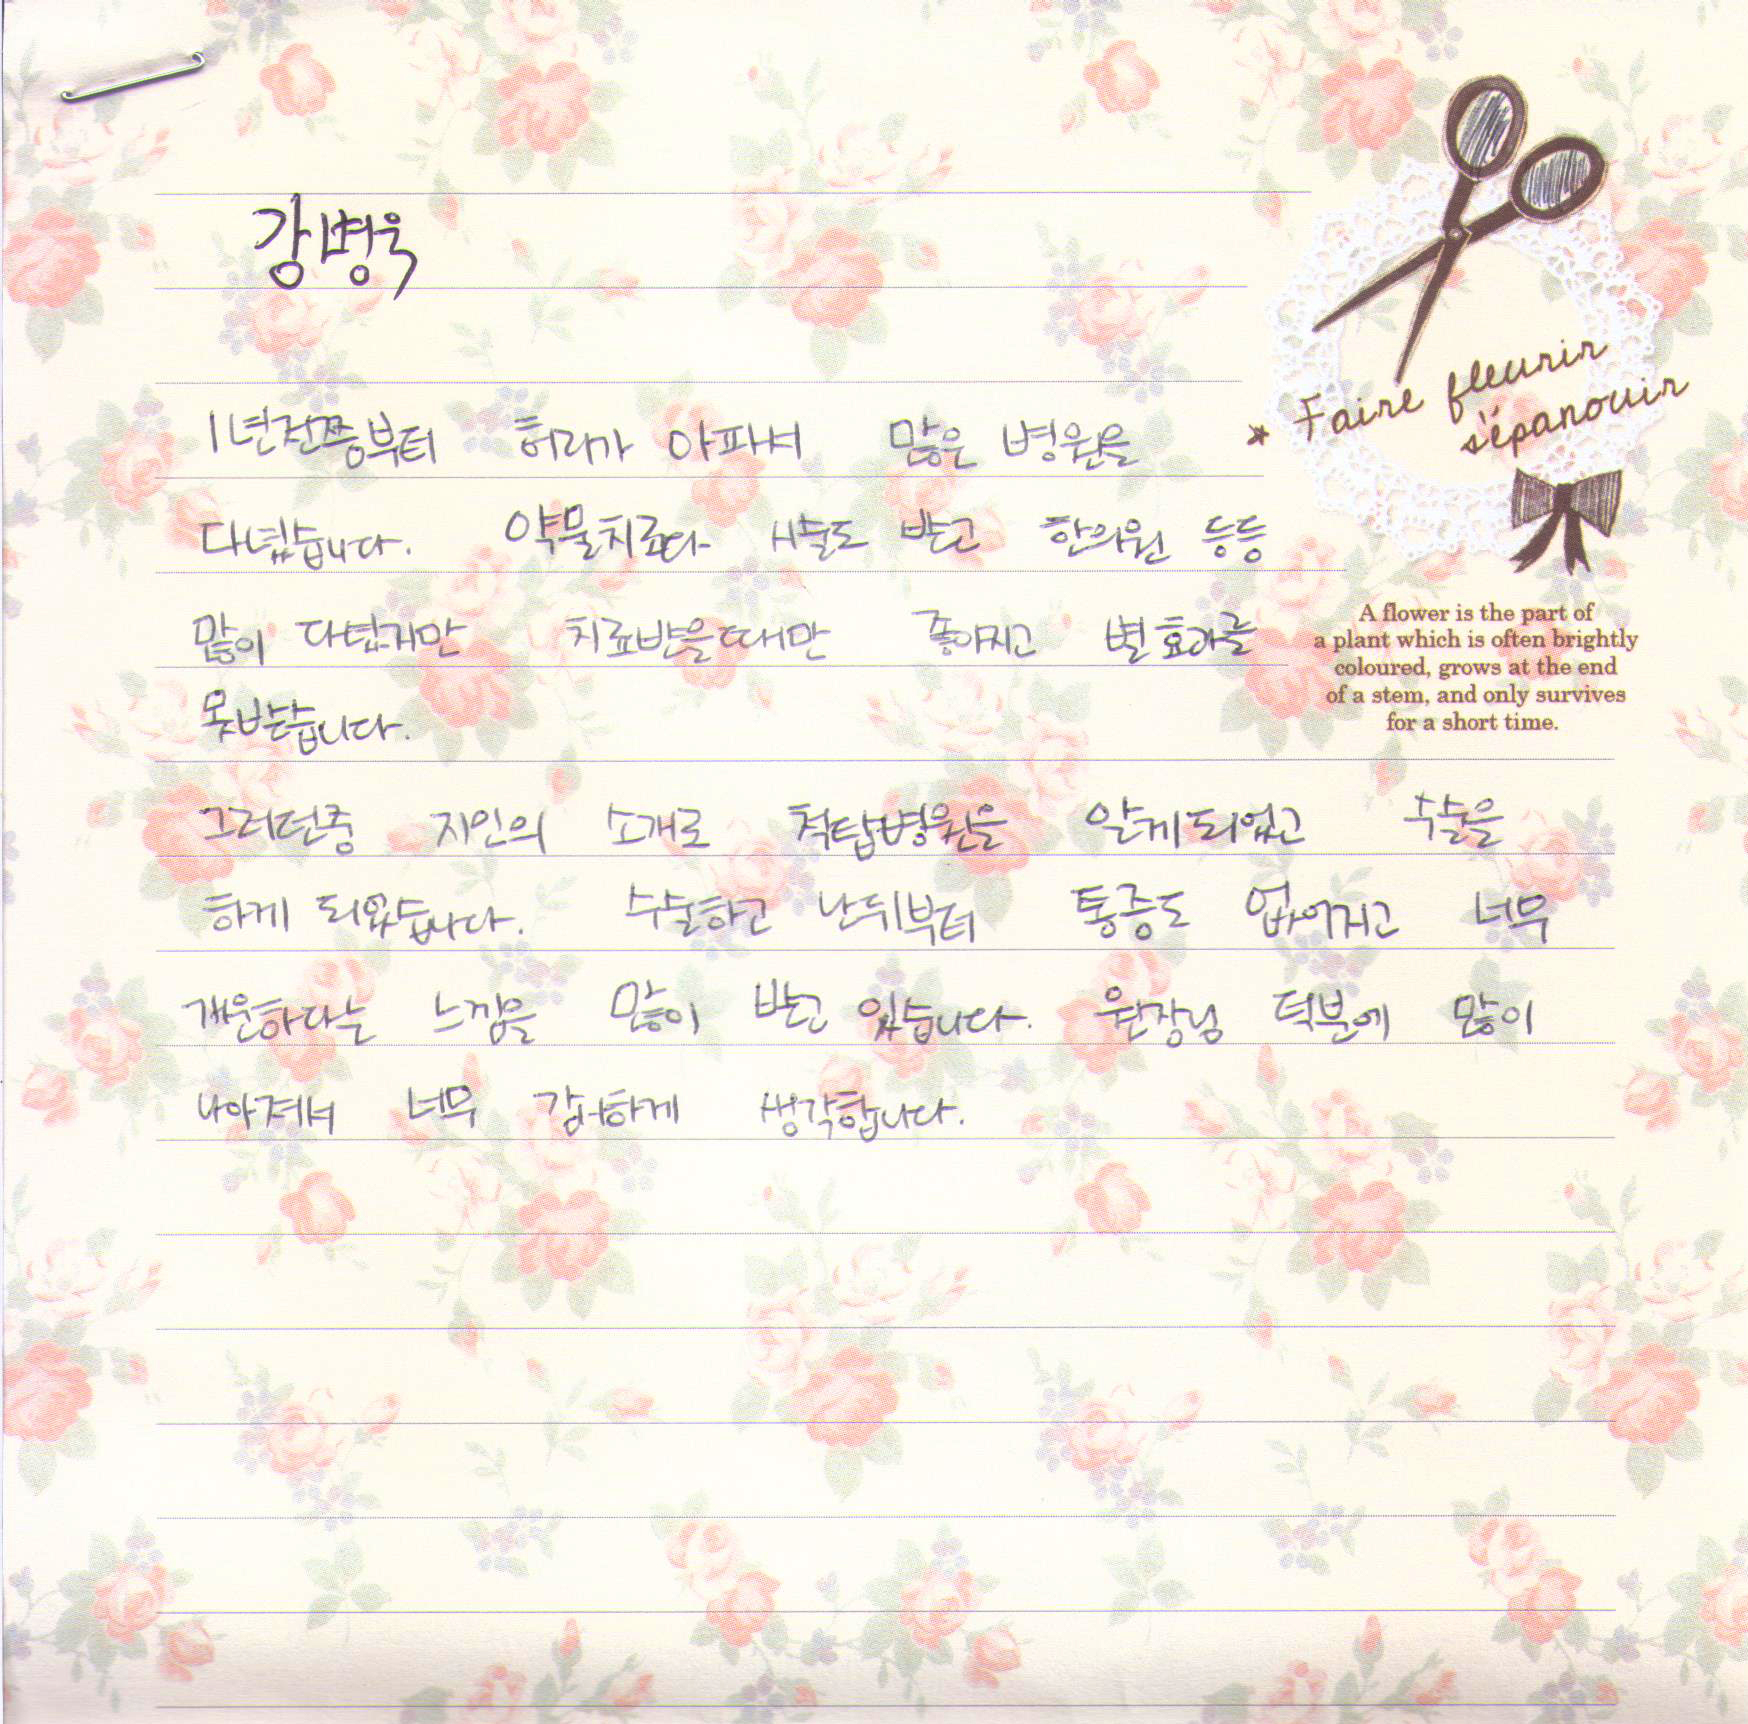 강병욱
1년전쯤부터 허리가 아파서 많은 병원을
다녔습니다. 약물치료다 시술도 받고 한의원 등등
많이 다녔지만 치료받을때만 좋아지고 별 효과를
못받았습니다.
그러던중 지인의 소개로 척탑병원을 알게되었고 수술을
하게 되었습니다. 수술하고 난뒤부터 통증도 없어지고 너무
개운하다는 느낌을 많이 받고 있습니다. 원장님 덕분에 많이
나아져서 너무 감사하게 생각합니다.
Faire fleurir
s'épanouir
A flower is the part of
a plant which is often brightly
coloured, grows at the end
of a stem, and only survives
for a short time.